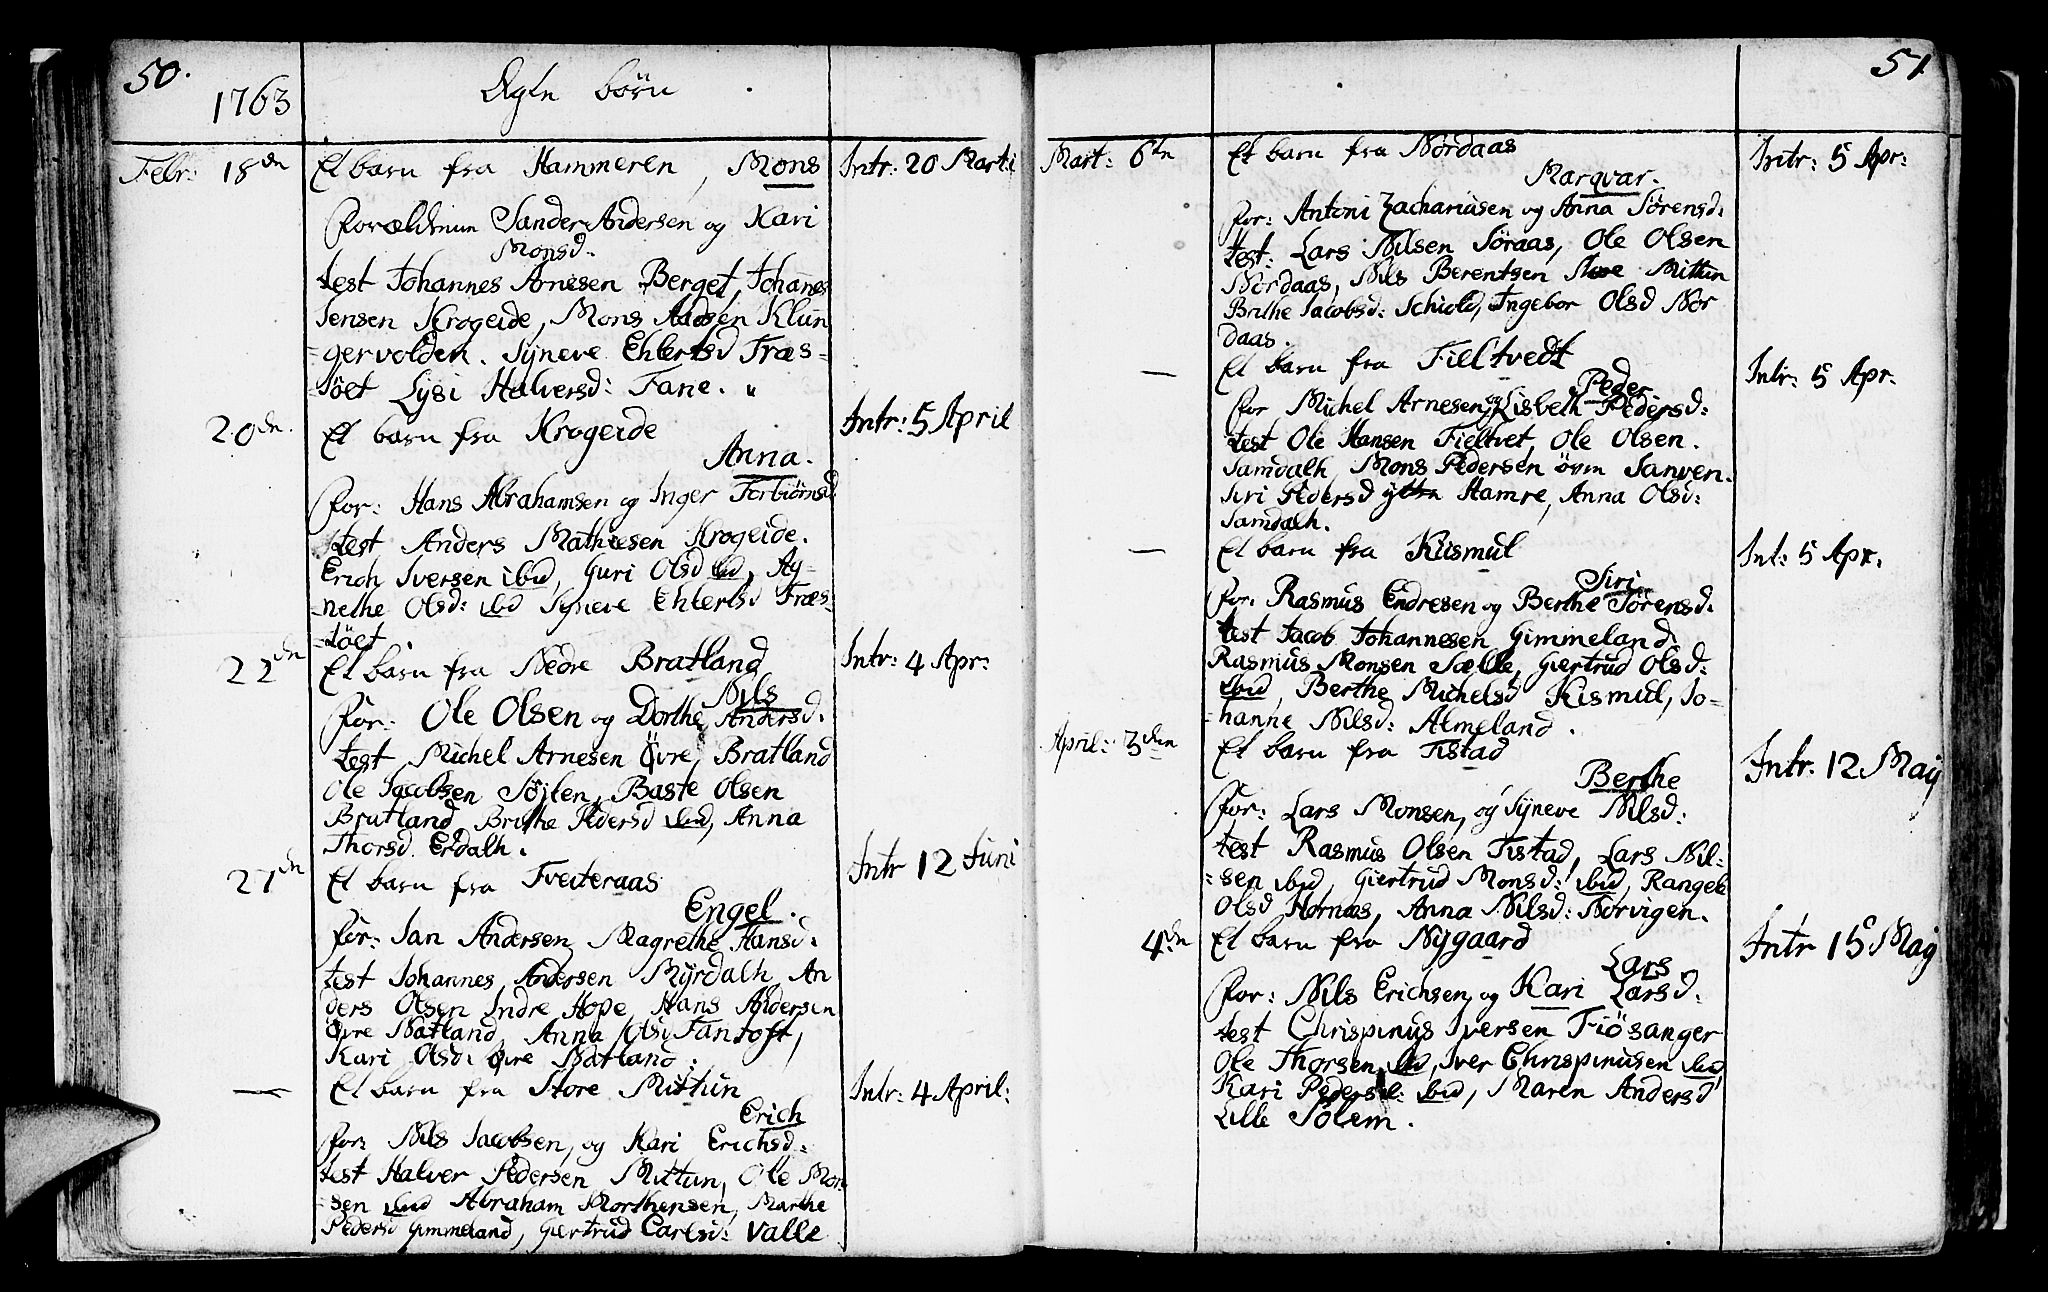 50.
1763
Ægte börn
Febr: 18den Et barn fra Hammeren, Mons Intr: 20 Marti
Forældrene Sander Andersen og Kari
Monsd.
test Johannes Arnesen Berget, Johannes
Jensen Krogeide, Mons Aadsen Klun
=gervolden. Syneve Ehlertsd Træs=
töet Lysi Halversd: Fane.
20den. Et barn fra Krogeide Intr: 5 April
Anna.
for: Hans Abrahamsen og Inger Torbiörnsd
test Anders Mathiesen Krogeide.
Erich Iversen ibid, Guri Olsd ibid, Ag=
=nethe Olsd: ibid Syneve Ehlertsd Træs=
=töet.
22den Et barn fra Nedre Bratland Intr: 4 Apr:
Nils
for: Ole Olsen og Dorthe Andersd:
test Michel Arnesen Övre Bratland
Ole Jacobsen Söjlen, Baste Olsen
Bratland, Brithe Pedersd ibid, Anna
Thorsd Erdalh.
27den Et barn fra Tveiteraas Intr 12 Juni
Engel.
for: Jan Andersen, Magrethe Hansd:
test Johannes Andersen Myrdalh, An
ders Olsen Indre Hope, Hans Andersen
övre Natland, Anna Olsd Fantoft,
Kari Olsd: övre Natland:
— Et barn fra Store Mittun Intr: 4 April:
Erich
for: Nils Jacobsen, og Kari Erichsd:
test Halver Pedersen Mittun, Ole Mon
=sen ibid Abraham Morthensen, Marthe
Pedersd Gimmeland, Giertrud Carlsd: Valle
51
Mart: 6ten Et barn fra Nordaas Intr: 5 Apr:
Marqvar.
for: Antoni Zachariasen og Anna Sörensd:
test: Lars Nilsen Söraas, Ole Olsen
Nordaas, Nils Berentsen Store Mittun
Brithe Jacobsd: Schiold, Ingebor Olsd Nor
daas.
— Et barn fra Fieltvedt Intr: 5 Apr.
Peder
for Michel Arnesen, og Lisbeth Pedersd:
test Ole Hansen Fieltvet, Ole Olsen.
Samdalh, Mons Pedersen övre Sanven.
Siri Pedersd ytre Hamre, Anna Olsd:
Samdalh.
— Et barn fra Kismul Int: 5 Apr.
Siri
for: Rasmus Endresen og Berthe Sörensd.
test Jacob Johannesen Gimmeland.
Rasmus Monsen Sælle, Giertrud Olsd:
ibid, Berthe Michelsd Kismul, Jo=
=hanne Nilsd: Almeland.
April: 3den Et barn fra Tistad Intr: 12 Maij
Berthe
for: Lars Monsen, og Syneve Nilsd:
test Rasmus Olsen Tistad, Lars Nil=
=sen ibid, Giertrud Monsd: ibid, Rangele
Olsd Hornæs, Anna Nilsd: Norvigen.
4den Et barn fra Nygaard Intr 15 Maij
Lars
for: Nils Erichsen, og Kari Larsd:
test Chrispinus Iversen Fiösanger
Ole Thorsen ibid, Iver Chrispinusen ibid
Kari Pedersd: ibid, Maren Andersd
Lille Sölem.